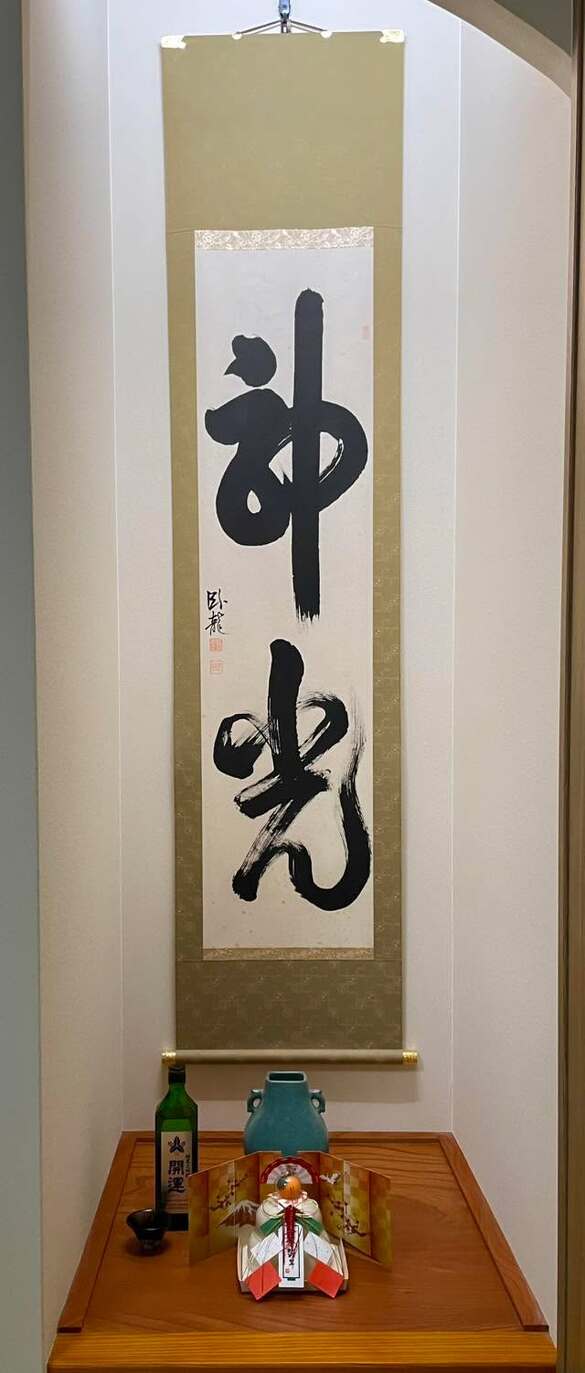 神光
臥龍
開運